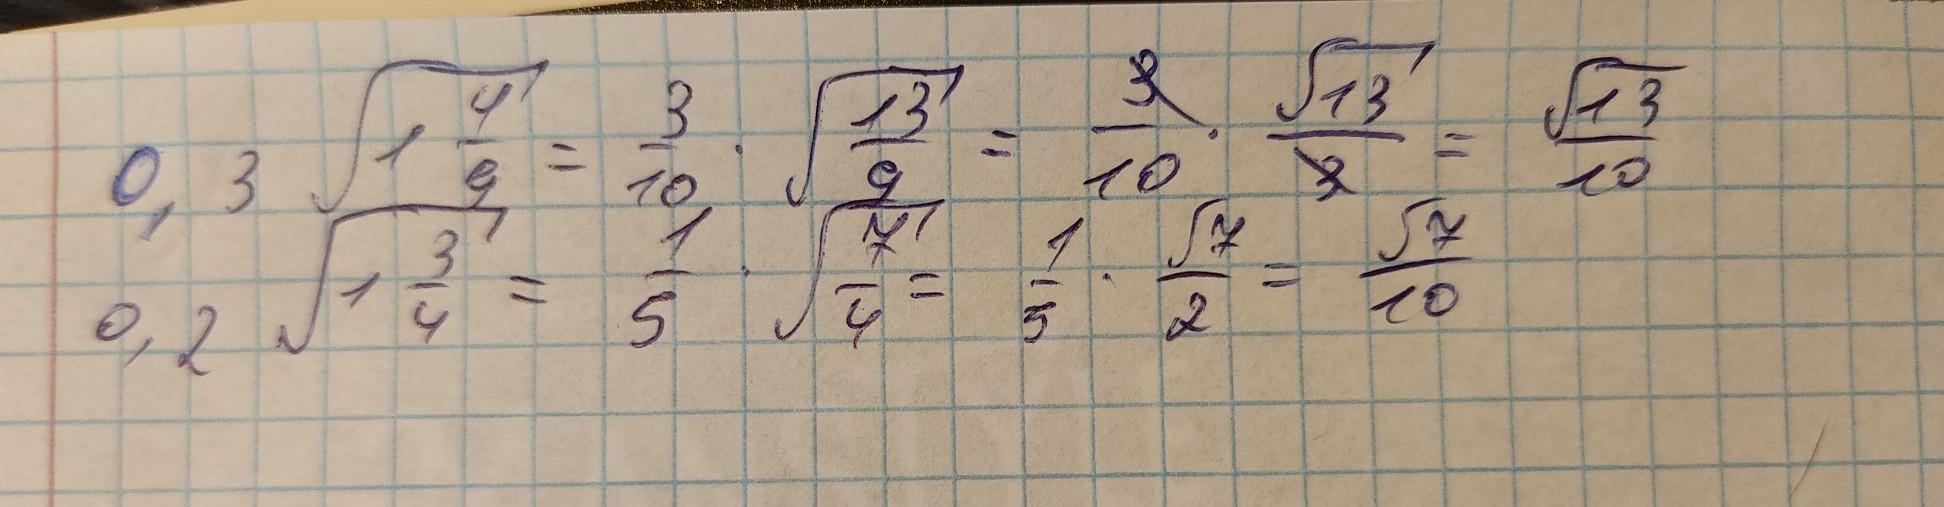 0,3 √(1 4/9) = 3/10 · √(13/9) = 3/10 · √13/3 = √13/10
0,2 √(1 3/4) = 1/5 · √(7/4) = 1/5 · √7/2 = √7/10